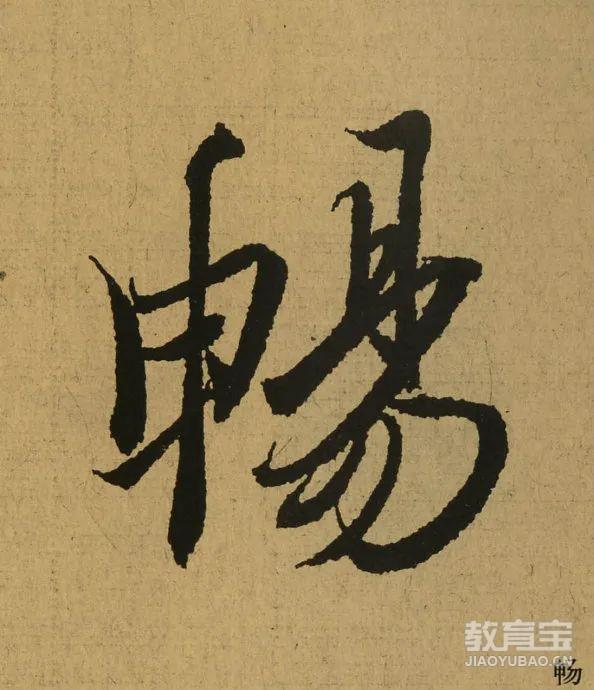 暢
教育宝
JIAOYUBAO.CN
畅